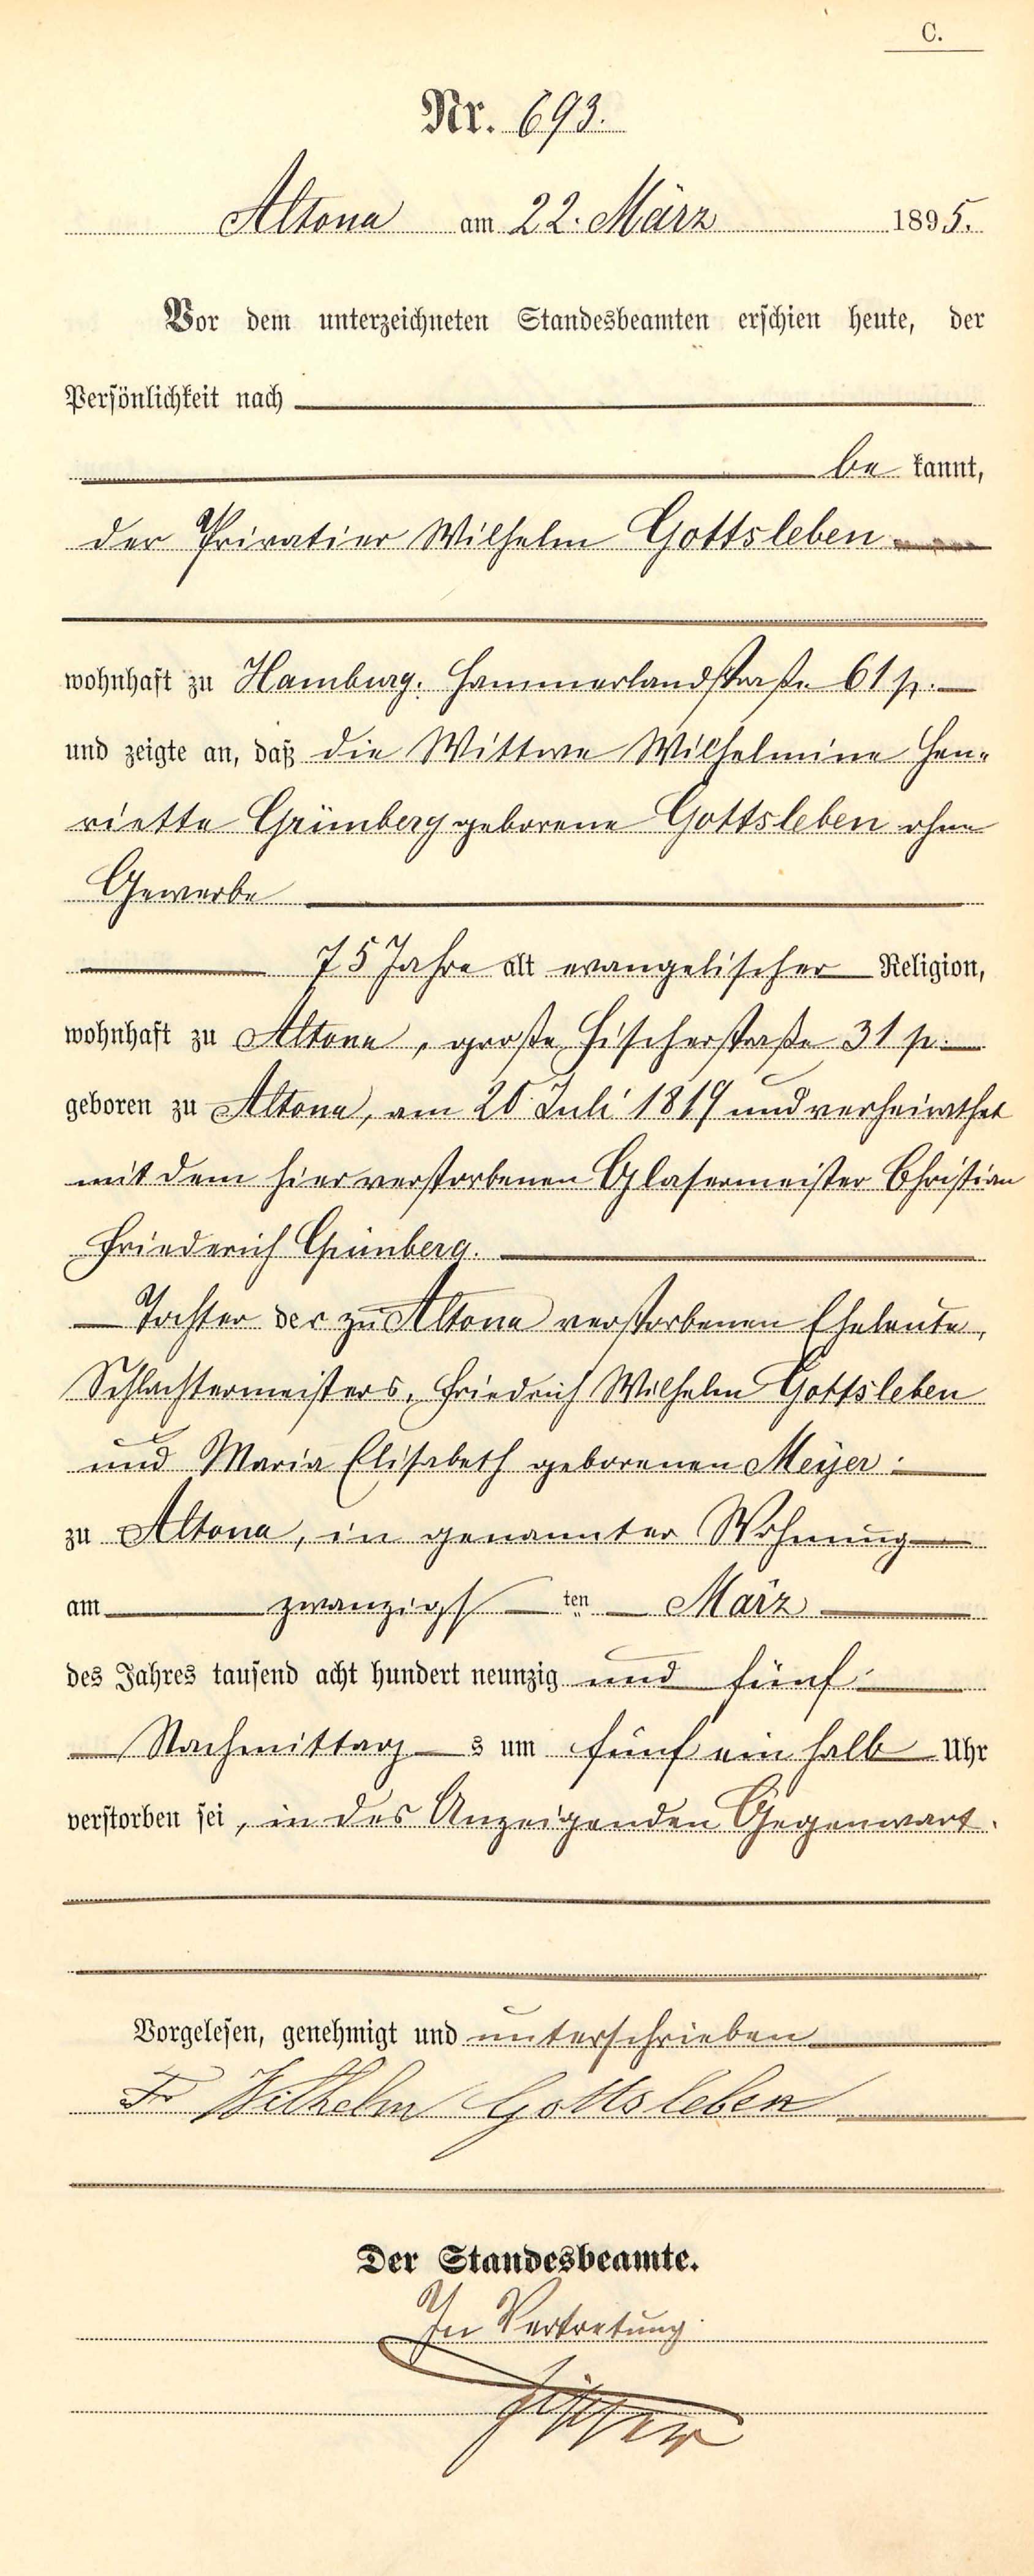 C.
Nr. 693.
Altona am 22. März 1895.
Vor dem unterzeichneten Standesbeamten erschien heute, der
Persönlichkeit nach
be kannt,
der Privatier Wilhelm Gottsleben
wohnhaft zu Hamburg, Hammerlandstraße 61 p.
und zeigte an, daß die Wittwe Wilhelmine Hen-
riette Grünberg geborene Gottsleben ohne
Gewerbe
75 Jahre alt evangelischer Religion,
wohnhaft zu Altona, große Fischerstraße 31 p.
geboren zu Altona, am 20 Juli 1819 und verheirathet
mit dem hier verstorbenen Glasermeister Christian
Friederich Grünberg.
Tochter der zu Altona verstorbenen Eheleute,
Schlachtermeisters, Friedrich Wilhelm Gottsleben
und Maria Elisabeth geborenen Meyer:
zu Altona, in genannter Wohnung
am zwanzigs ten März
des Jahres tausend acht hundert neunzig und fünf
Nachmittag s um fünf ein halb Uhr
verstorben sei, in des Anzeigenden Gegenwart.
Vorgelesen, genehmigt und unterschrieben
Fr Wilhelm Gottsleben
Der Standesbeamte.
In Vertretung